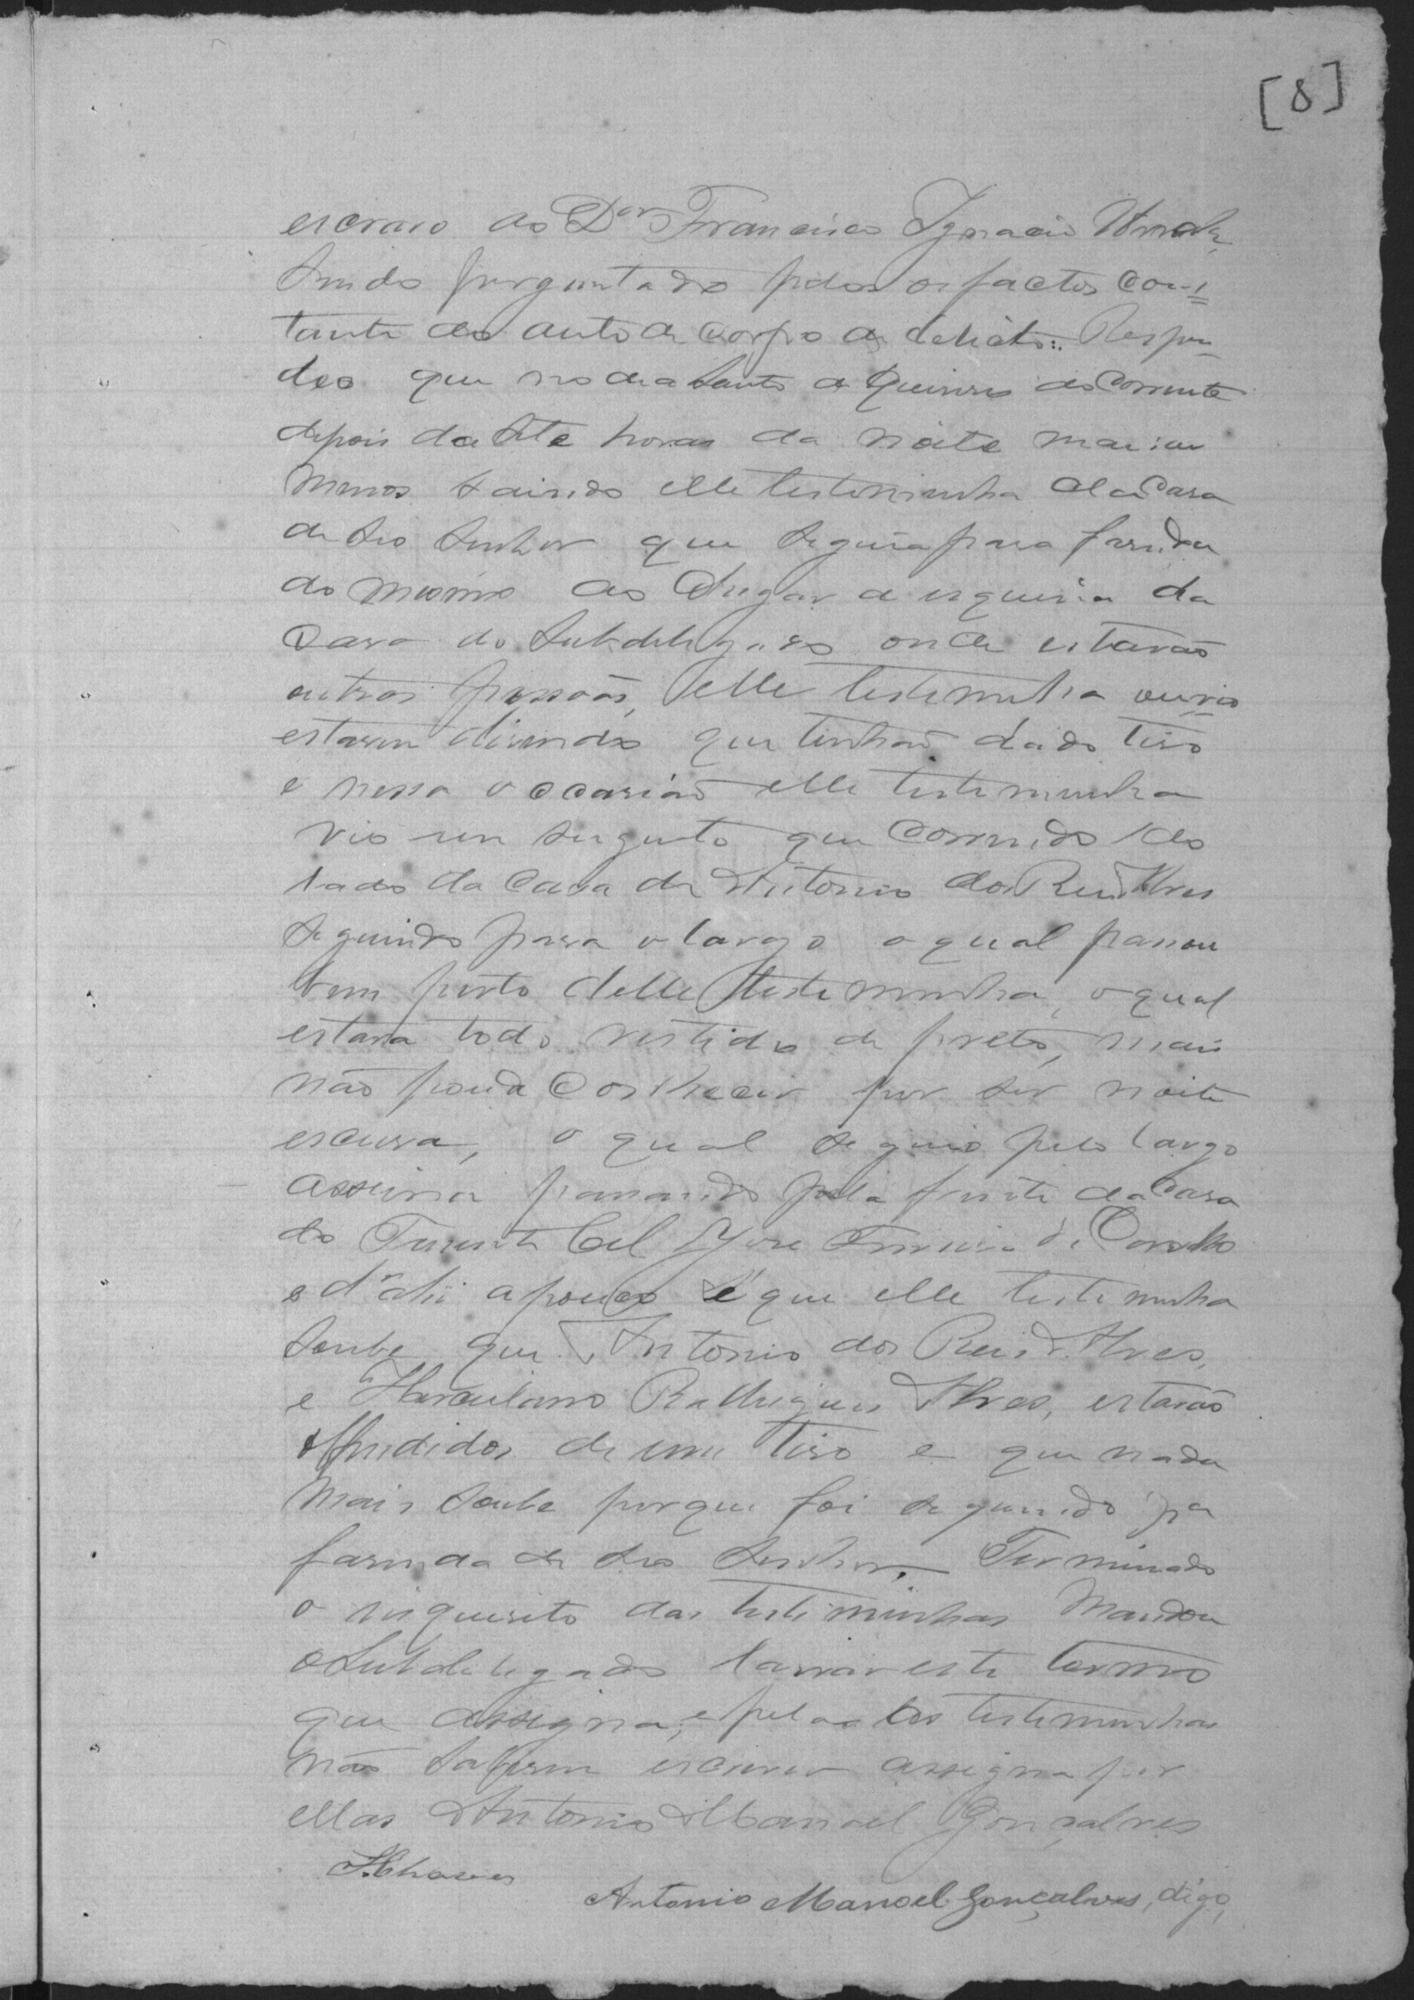 [8]
escravo do Dor Francisco Ignacio
sendo perguntado pelos os factos cons=
tante do auto de corpo de delicto: Respon-
deo que no dia santo de quinse do corrente
depois da sete horas da noite mais ou
menos saindo elle testeminha da casa
de seo senhor que seguia para fasenda
do mesmo ao chegar a esquina da
casa do subdelegado onde estavão
outras pessoas, elle testeminha ouvio
estarem disendo que tinhão dado tiro
e nessa occasião elle testeminha
vio um sugeito que corrido do
lado da casa de Antonio dos Reis Alves
seguindo para o largo o qual passou
bem perto delle testeminha, o qual
estava todo vestido de preto, mais
não poude conhecer por ser noite
escura, o qual seguio pelo largo
assima passando pela frente da casa
do Tenente Cel José Ferreira de
e d'ahi a pouco é que elle testeminha
soube que Antonio dos Reis Alves,
e Herculano Rodrigues Alves, estavão
offendidos de um tiro e que nada
mais soube porque foi seguindo pa
fasenda de seo senhor. Terminado
o inquerito das testiminhas Mandou
o subdelegado lavrar este termo
que assigna, e pelas testeminhas
não saberem escrever assigna por
ellas Antonio Manoel Gonçalves
Antonio Manoel Gonçalves, digo,